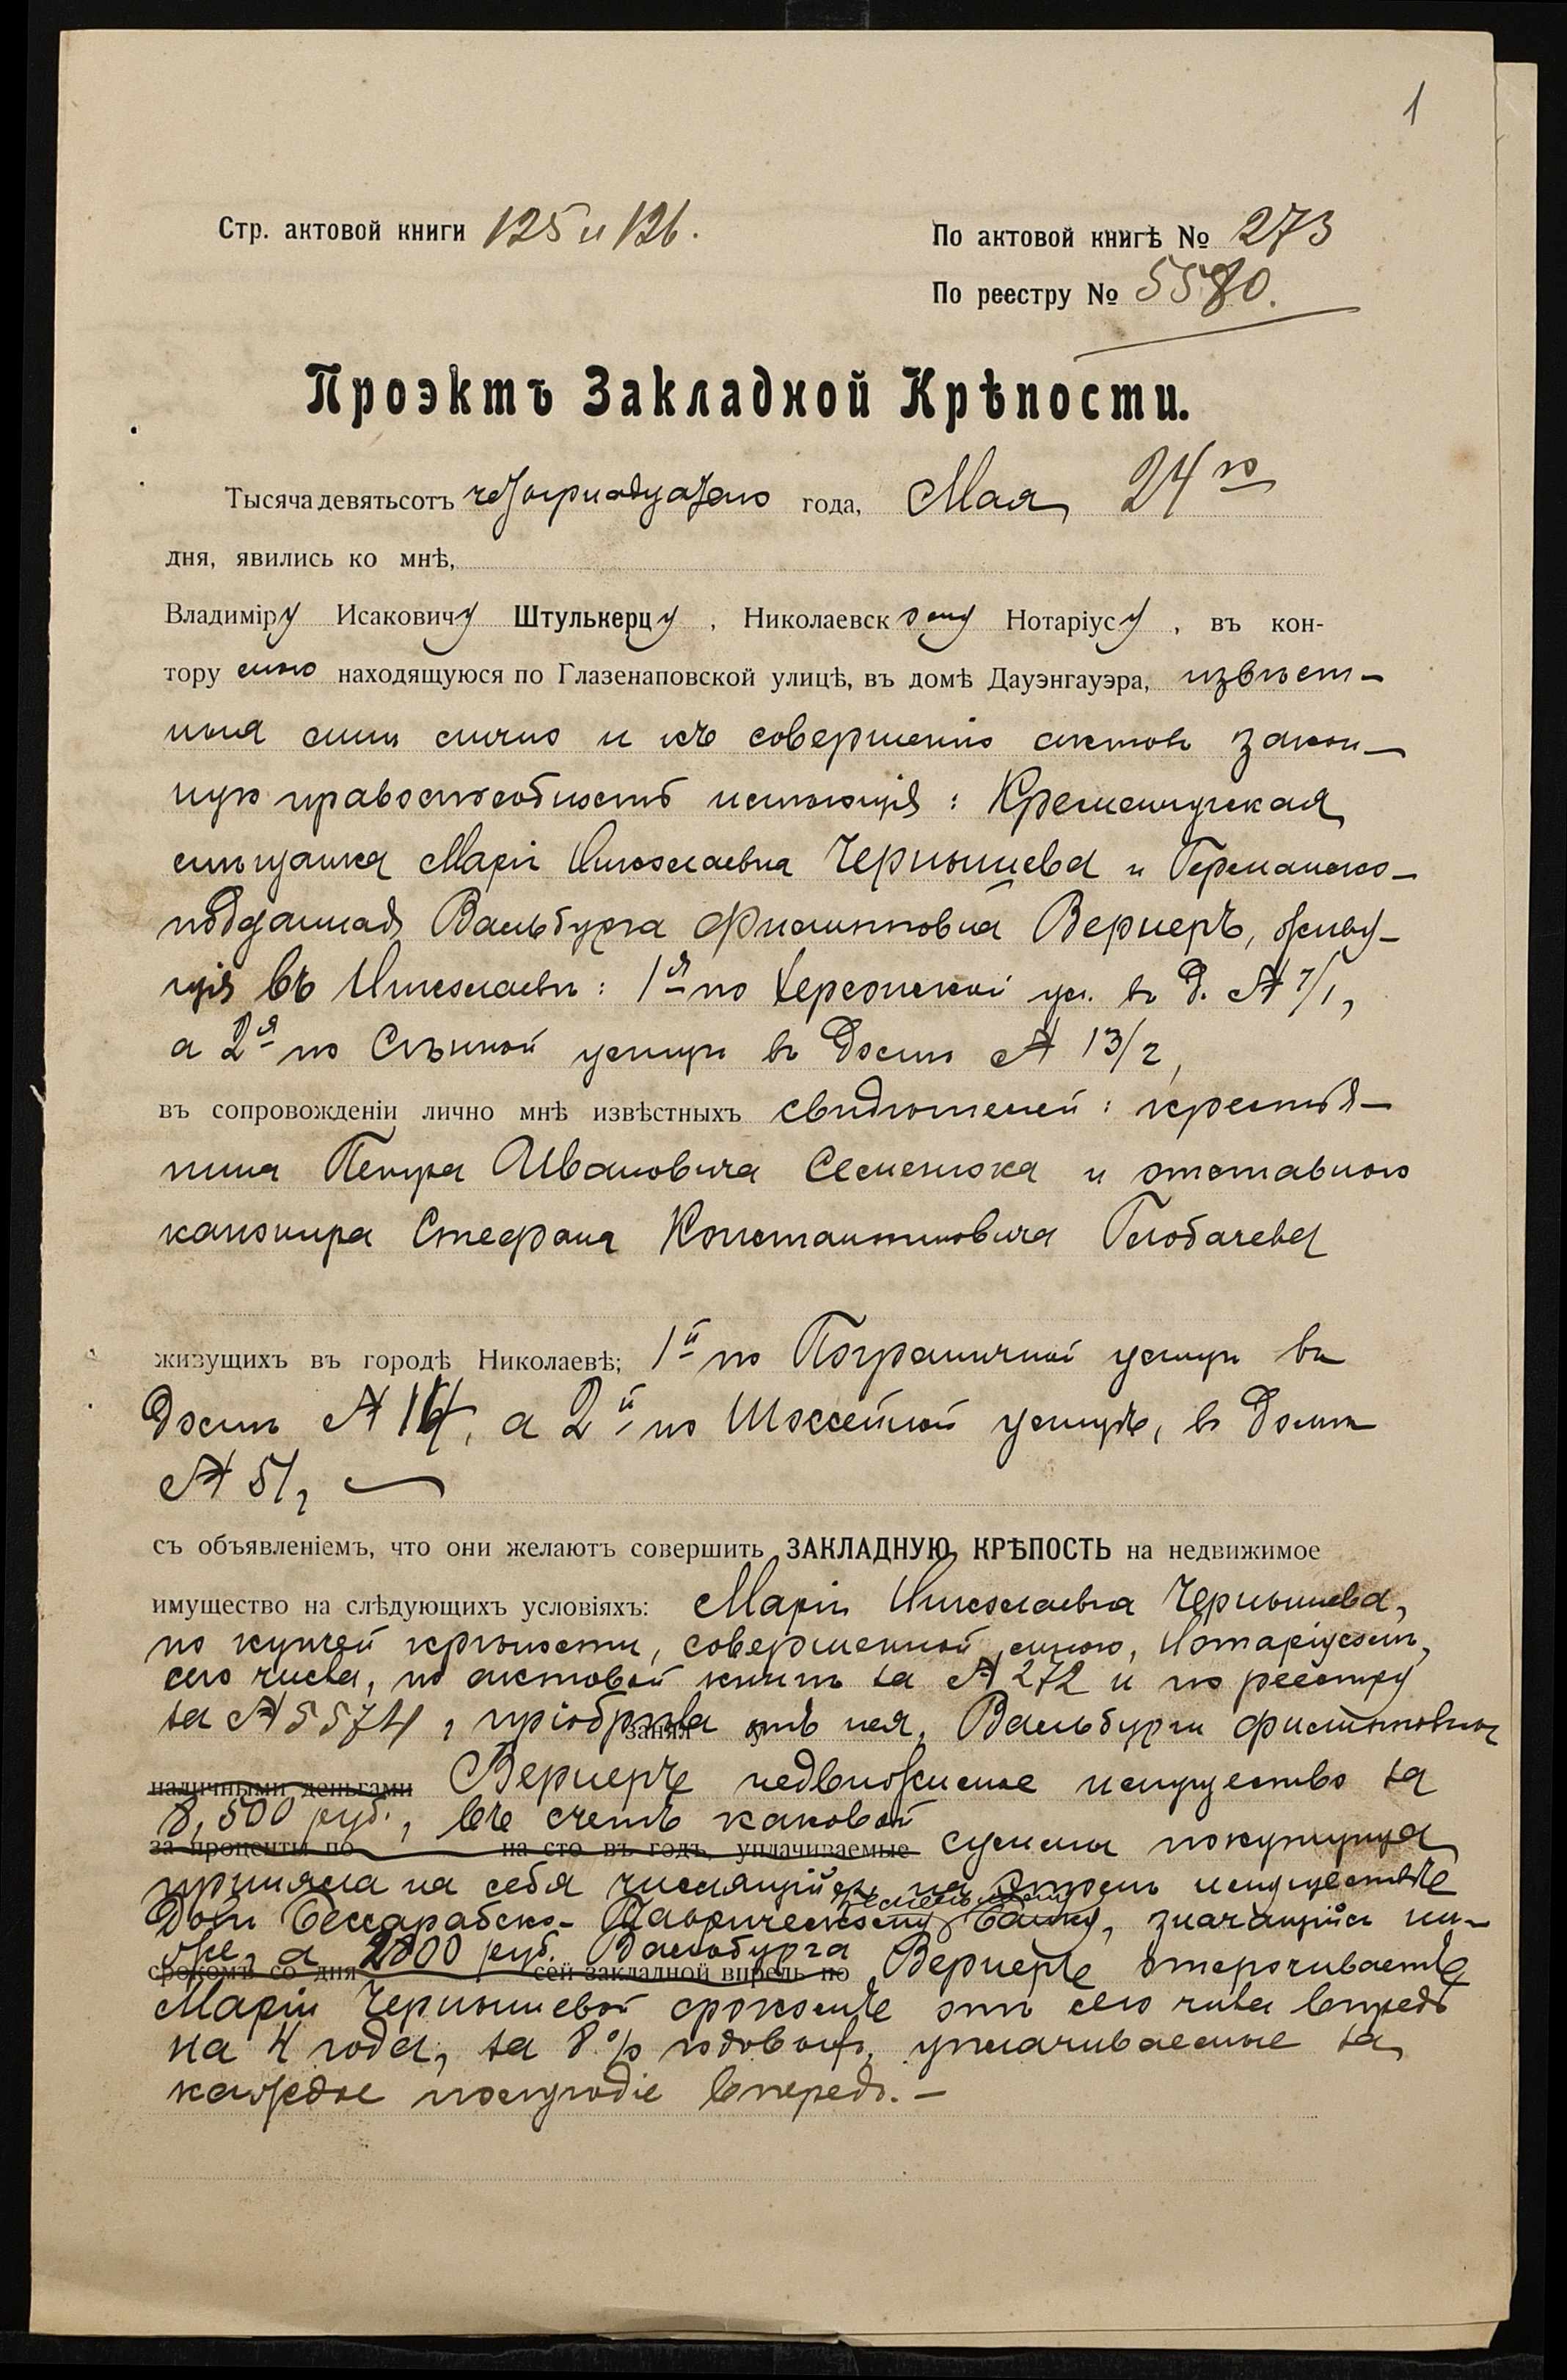 1
Стр. актовой книги 125 и 126.
По актовой книгѣ № 273
По реестру № 5580.
Проэктъ Закладной Крѣпости.
Тысяча девятьсотъ четырнадцатаго года, Мая 24го
дня, явились ко мнѣ,
Владиміру Исаковичу Штулькерцу, Николаевскому Нотаріусу, въ кон-
тору мою находящуюся по Глазенаповской улицѣ, въ домѣ Дауэнгауэра, извѣст-
ныя мнѣ лично и къ совершенію актовъ закон-
ную правоспособность имѣющія: Кременчугская
мѣщанка Марія Николаевна Чернышева и Германско-
подданная Вальбурга Филипповна Вернеръ, живу-
щія въ Николаевѣ: 1я по Херсонской ул. въ д. № 7/1,
а 2я по Сѣнной улицѣ въ домѣ № 13/2,
въ сопровожденіи лично мнѣ извѣстныхъ свидѣтелей: крестья-
нина Петра Ивановича Семенюка и отставного
канонира Стефана Константиновича Глобачева
живущихъ въ городѣ Николаевѣ; 1й по Пограничной улицѣ въ
домѣ № а 2й по Шоссейной улицѣ, въ домѣ
№ 51,
съ объявленіемъ, что они желаютъ совершить ЗАКЛАДНУЮ КРѢПОСТЬ на недвижимое
имущество на слѣдующихъ условіяхъ: Марія Николаевна Чернышева,
по купчей крѣпости, совершенной мною, Нотаріусомъ,
сего числа, по актовой книгѣ за № 272 и по реестру
за № 5574, пріобрѣла занял у отъ нея, Вальбурги Филипповны
наличными деньгами Вернеръ недвижимое имущество за
8,500 руб., въ счетъ каковой
за проценты по на сто въ годъ, уплачиваемые суммы покупщица
приняла на себя числящійся на этомъ имуществѣ
Земельному
долгъ Бессарабско-Таврическому Банку, значащійся ни-
же, а 2800 руб. Вальбурга
срокомъ со дня сей закладной впредь по Вернеръ отсрочиваетъ
Маріи Чернышевой срокомъ отъ сего числа впредь
на 4 года, за 8% годовыхъ, уплачиваемые за
каждое полугодіе впередъ. —